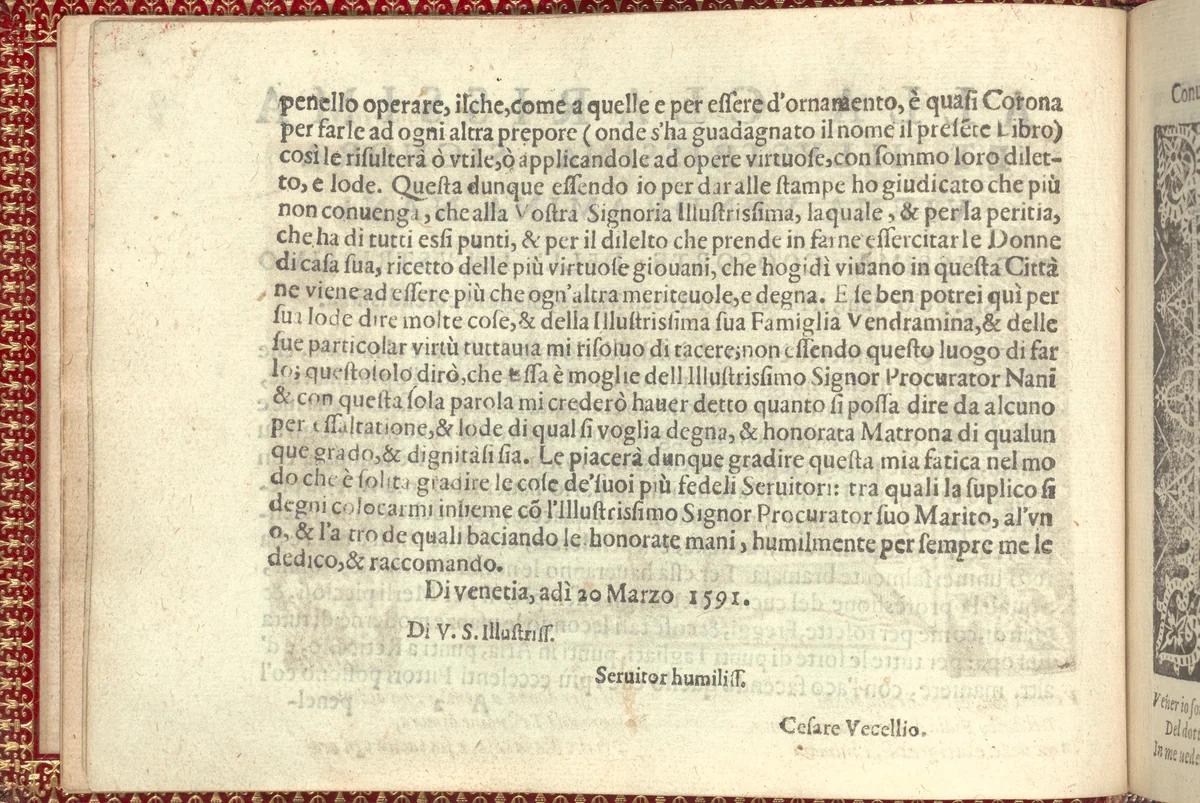 penello operare, ilche, come a quelle e per eſſere d'ornamento, è quaſi Corona
per farle ad ogni altra prepore (onde s'ha guadagnato il nome il preſẽte Libro)
così le riſulterà ò vtile, ò applicandole ad opere virtuoſe, con ſommo loro dilet-
to, e lode. Queſta dunque eſſendo io per dar alle ſtampe ho giudicato che più
non conuenga, che alla Voſtra Signoria Illuſtrisſima, laquale, & per la peritia,
che ha di tutti esſi punti, & per il dilelto che prende in farne eſſercitar le Donne
di caſa ſua, ricetto delle più virtuoſe giouani, che hogidì viuano in queſta Città
ne viene ad eſſere più che ogn'altra meriteuole, e degna. E ſe ben potrei quì per
ſua lode dire molte coſe, & della Illuſtrisſima ſua Famiglia Vendramina, & delle
ſue particolar virtù tuttauia mi riſoluo di tacere; non eſſendo queſto luogo di far
lo; queſto ſolo dirò, che eſſa è moglie dell Illuſtrisſimo Signor Procurator Nani
& con queſta ſola parola mi crederò hauer detto quanto ſi poſſa dire da alcuno
per eſſaltatione, & lode di qual ſi voglia degna, & honorata Matrona di qualun
que grado, & dignità ſi ſia. Le piacerà dunque gradire queſta mia fatica nel mo
do che è ſolita gradire le coſe de'ſuoi più fedeli Seruitori: tra quali la ſuplico ſi
degni colocarmi inſieme cõ l'Illuſtrisſimo Signor Procurator ſuo Marito, al'vn
o, & l'a tro de quali baciando le honorate mani, humilmente per ſempre me le
dedico, & raccomando.
Di venetia, adì 20 Marzo 1591.
Di V. S. Illuſtriſſ.
Seruitor humiliſſ.
Ceſare Vecellio.
Conu
Veher io ſo
Del dott
In me uede